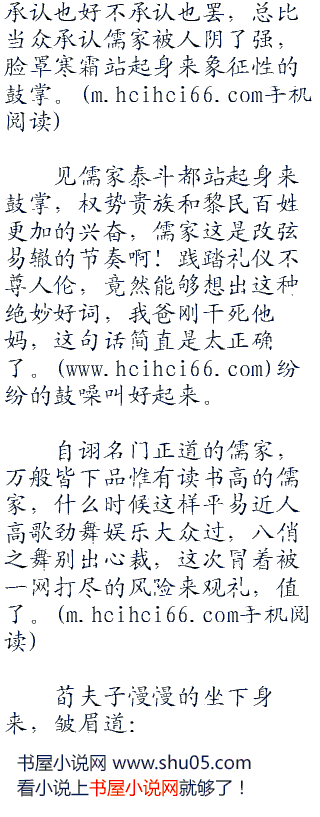 承认也好不承认也罢，总比
当众承认儒家被人阴了强，
脸罩寒霜站起身来象征性的
鼓掌。(m.hcihci66.com手机
阅读)
见儒家泰斗都站起身来
鼓掌，权势贵族和黎民百姓
更加的兴奋，儒家这是改弦
易辙的节奏啊！践踏礼仪不
尊人伦，竟然能够想出这种
绝妙好词，我爸刚干死他
妈，这句话简直是太正确
了。(www.hcihci66.com)纷
纷的鼓噪叫好起来。
自诩名门正道的儒家，
万般皆下品惟有读书高的儒
家，什么时候这样平易近人
高歌劲舞娱乐大众过，八佾
之舞别出心裁，这次冒着被
一网打尽的风险来观礼，值
了。(m.hcihci66.com手机阅
读)
荀夫子慢慢的坐下身
来，皱眉道：
书屋小说网 www.shu05.com
看小说上书屋小说网就够了！